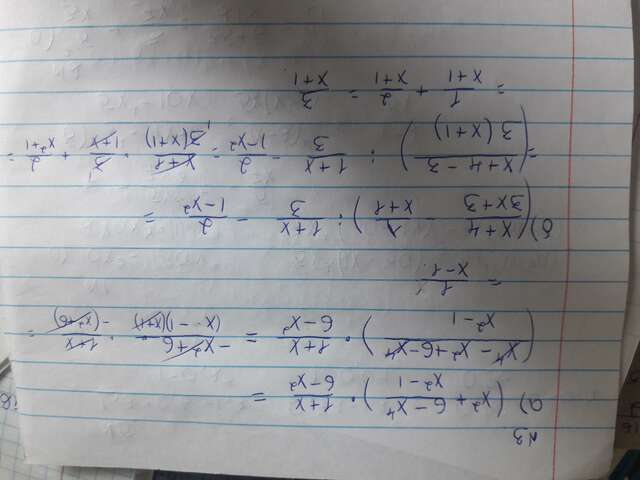 N3
а) (x² + (6 - x⁴)/(x² - 1)) · (1+x)/(6-x²) =
(x⁴ - x² + 6 - x⁴)/(x² - 1) · (1+x)/(6-x²) = (-x²+6)/((x-1)(x+1)) · (1+x)/(-(x²+6)) =
= 1/(x-1)
б) ((x+4)/(3x+3) - 1/(x+1)) : (1+x)/3 - 2/(1-x²) =
= ((x+4-3)/(3(x+1))) : (1+x)/3 - 2/(1-x²) = (x+1)/(3(x+1)) · 3/(1+x) + 2/(x²+1) =
= 1/(x+1) + 2/(x+1) = 3/(x+1)